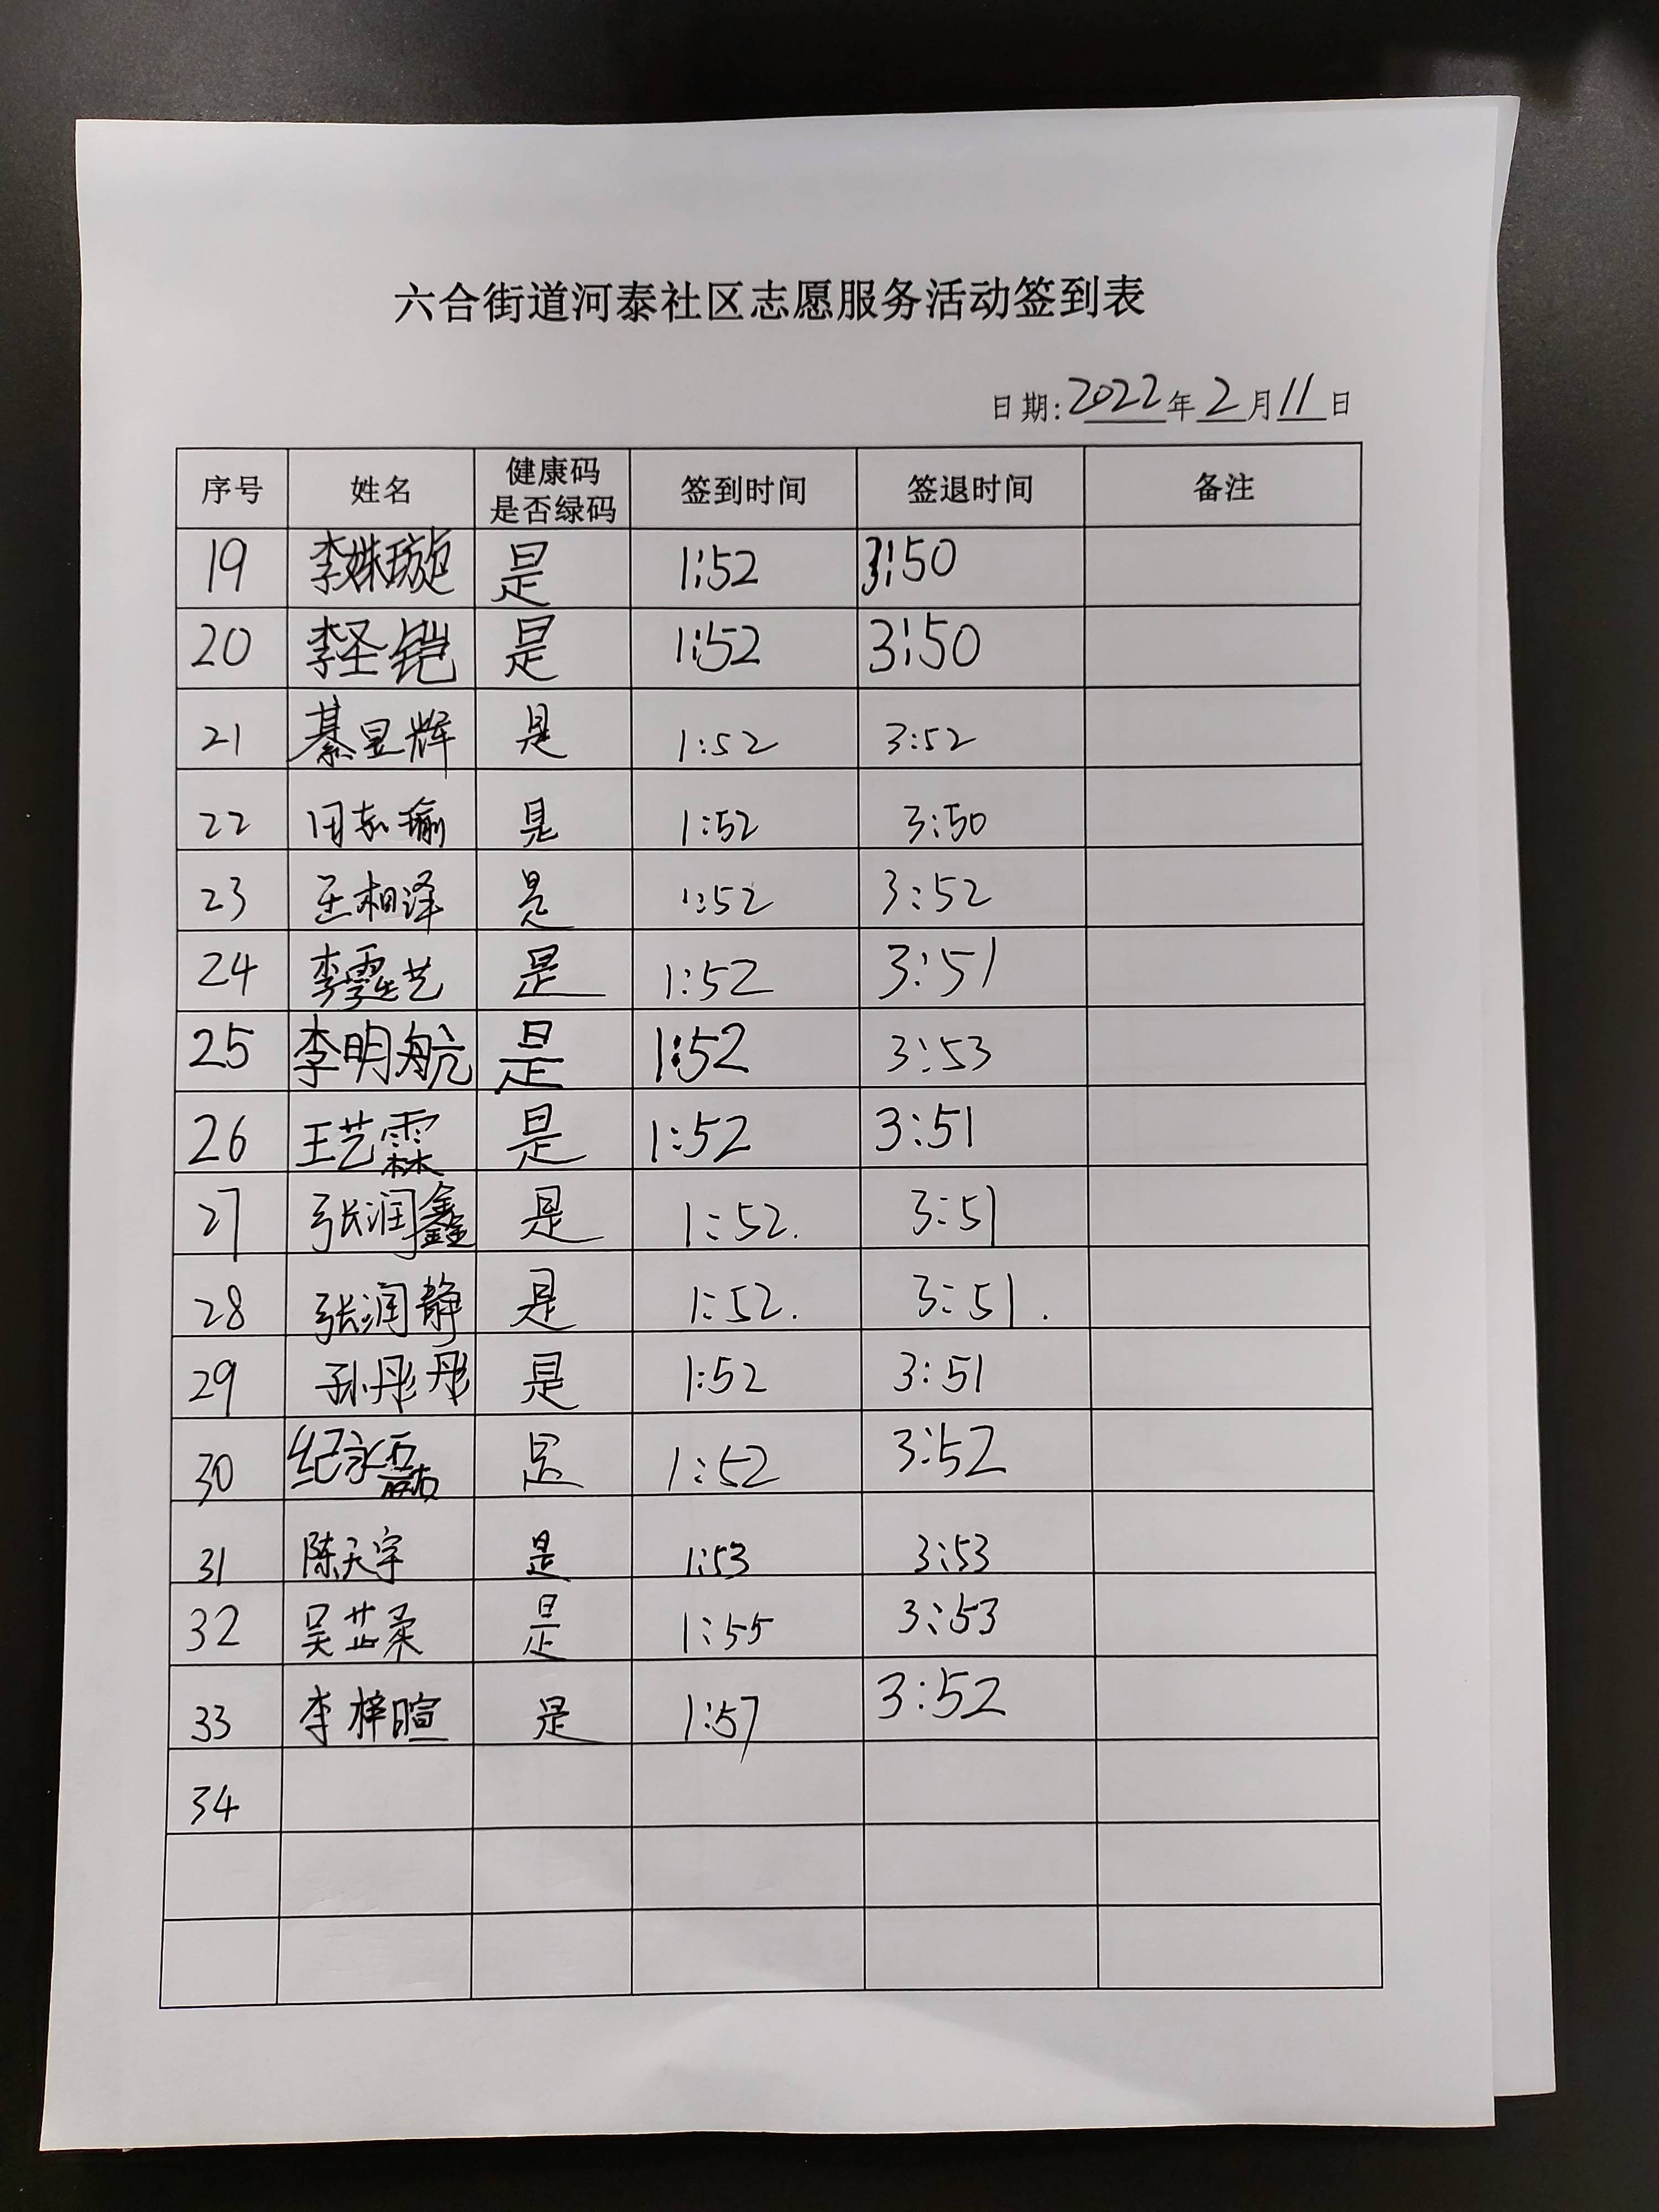 六合街道河泰社区志愿服务活动签到表
日期:2022年2月11日
序号 姓名 健康码是否绿码 签到时间 签退时间 备注
19 李姝璇 是 1:52 3:50
20 李圣铠 是 1:52 3:50
21 綦昱辉 是 1:52 3:52
22 田嘉瑜 是 1:52 3:50
23 王相泽 是 1:52 3:52
24 李 艺 是 1:52 3:51
25 李明航 是 1:52 3:53
26 王艺霖 是 1:52 3:51
27 张润鑫 是 1:52. 3:51
28 张润静 是 1:52. 3:51.
29 孙彤彤 是 1:52 3:51
30 纪永磊 是 1:52 3:52
31 陈天宇 是 1:53 3:53
32 吴芷柔 是 1:55 3:53
33 李梓暄 是 1:57 3:52
34